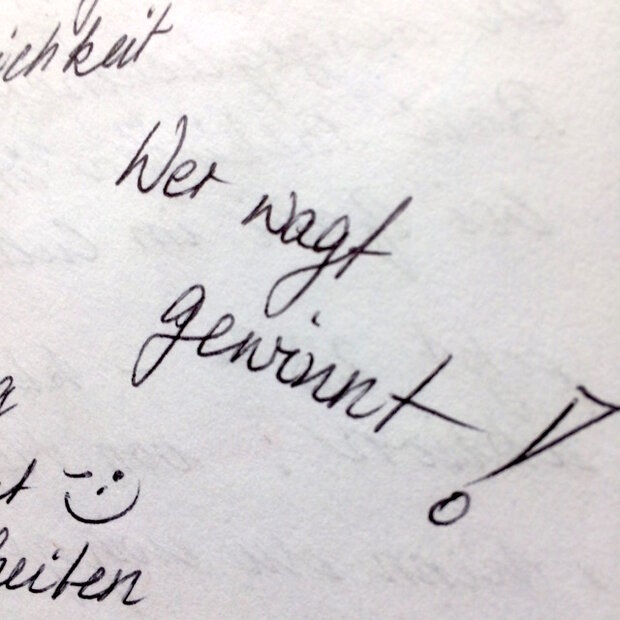 ichkeit
Wer wagt
gewinnt!